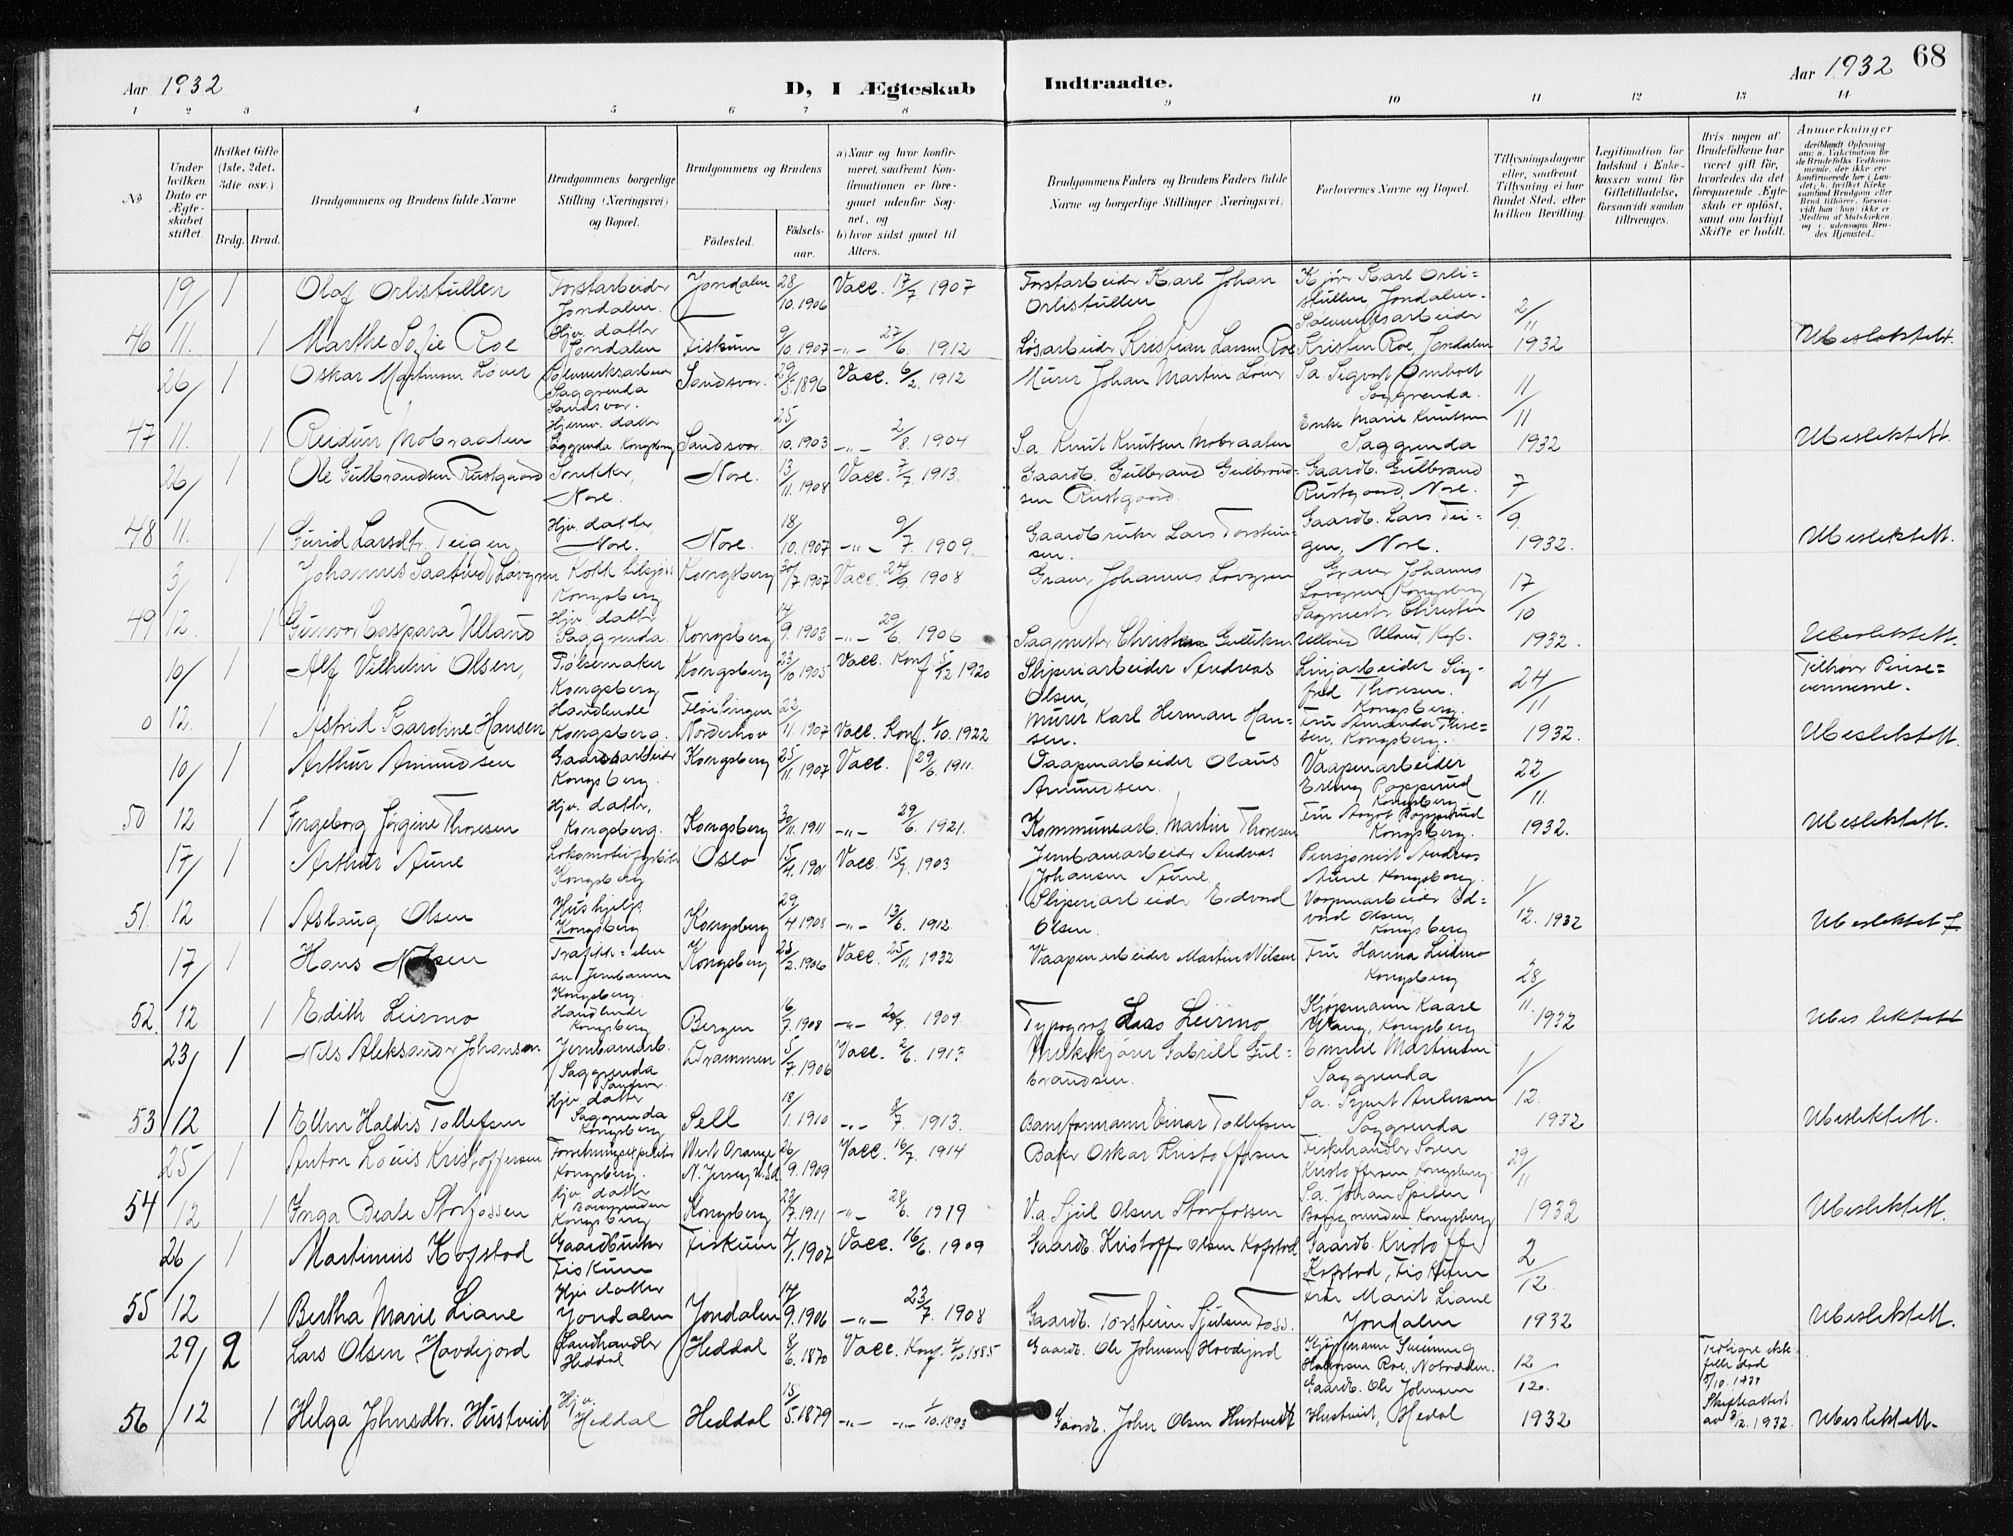 68
Aar 1932
D, I Ægteskab Indtraadte.
Aar 1932
1 2 3 4 5 6 7 8 9 10 11 12 13 14
No
Under hvilken Dato er Ægteskabet stiftet.
Hvilket Gifte (1ste, 2det, 3die osv.)
Brdg. Brud.
Brudgommens og Brudens fulde Navne
Brudgommens borgerlige Stilling (Næringsvei) og Bopæl.
Brudgommens og Brudens
Fødested. Fødselsaar.
a) Naar og hvor konfirmeret, saafremt Konfirmationen er foregaaet udenfor Sognet, og
b) hvor sidst gaaet til Alters.
Brudgommens Faders og Brudens Faders fulde Navne og borgerlige Stillinger (Næringsvei)
Forlovernes Navne og Bopæl.
Tillysningsdagene eller, saafremt Tillysning ei har fundet Sted, efter hvilken Bevilling.
Legitimation for Indskud i Enkekassen samt for Giftetilladelse, forsaavidt saadan tiltrænges.
Hvis nogen af Brudefolkene har været gift før, hvorledes da det foregaaende Ægteskab er opløst, samt om lovligt Skifte er holdt.
Anmerkninger
19/ 1 Olaf Orlistullen Forstarbeider Jondalen. Jondalen 28/10.1906 Vacc. 17/7 1907 Forstarbeider Karl Johan Orlistullen Kjør. Karl Orlistullen, Jondalen.
46 11. 1 Marthe Sofie Roe Hjv. datter Jondalen Fiskum 9/10.1907 -„- 27/6. 1912 Løsarbeider Kristian Larsen Roe Sølvverksarbeider Kristen Roe, Jondalen 2/11 1932 Ubeslektet.
26/ 1 Oskar Martinsen Løver Sølvverksarbeider Saggrenda Sandsvær. Sandsvær. 29/5.1896 Vacc. 6/2. 1912 Murer Johan Martin Løver S.a. Sigvart Omholt Saggrenda.
47 11. 1 Reidun Mobraaten Hjemv. datter Saggrenda Kongsberg Sandsvær. 25/10.1903 -„- 2/8. 1904 S.a. Knut Knutsen Mobraaten Enke Marie Knutsen Saggrenda 11/11 1932 Ubeslektet.
26/ 1 Ole Gulbrandsen Rustgaard Snekker, Nore. Nore. 13/11.1908 Vacc. 7/7. 1913. Gaardb. Gulbrand Gulbrandsen Rustgaard. Gaardb. Gulbrand Rustgaard, Nore.
48 11. 1 Gunid Larsdtr. Teigen Hjv. datter, Nore. Nore. 18/10.1907 -„- 9/7. 1909. Gaardbruker Lars Torsteinsen. Gaardb. Lars Teigen, Nore. 7/9. 1932. Ubeslektet.
3/ Johannes Saatvedt Løvgren Kokk tilsjøs Kongsberg Kongsberg 20/7 1907 Vacc. 24/9. 1908 Graver Johannes Løvgren Graver Johannes Løvgren Kongsberg
49 12. 1 Gunvor Caspara Ulland Hjv. datter Saggrenda. Kongsberg 14/9.1903 -„- 29/6. 1906 Sagmester Christian Gulliksen Ulland Sagmester Christian Uland, Kgb. 17/10 1932. Ubeslektet.
10/ 1 Alf Vilhelm Olsen, Pølsemaker Kongsberg Kongsberg 23/10 1905 Vacc. Konf 5/12 1920 Sliperiarbeider Andreas Olsen, Linjarbeider Sigfred Thoresen. Kongsberg. Tilhører Pinsevennerne.
0 12. 1 Astrid Karoline Hansen Handlende Kongsberg. Norderhov 22/11.1907 Vacc. Konf 1/10.1922 Murer Karl Herman Hansen. Fru Amanda Thoresen, Kongsberg. 24/11 1932. Ubeslektet.
10/ 1 Arthur Amundsen Gaardsarbeider Kongsberg. Kongsberg 25/11.1907 Vacc. 29/6.1911. Vaapenarbeider Olaus Amundsen. Vaapenarbeider Erling Popperud Kongsberg
50 12 1 Ingeborg Jørgine Thoresen Hjv. datter, Kongsberg. Kongsberg 30/11.1911 -„- 29/6. 1921. Kommunearb. Martin Thoresen Fru Aagot Popperud Kongsberg. 22/11. 1932. Ubeslektet.
17/ 1 Arthur Aune Kongsberg Oslo 15/4.1901 Vacc. 15/9. 1903 Jernbanearbeider Andreas Johansen Aune Pensjonist Andreas Aune. Kongsberg.
51. 12 1 Aslaug Olsen Hushjelp Kongsberg Kongsberg 29/4 1908 -„- 13/6. 1912. Sliperiarbeider Edvard Olsen. Vaapenarbeider Edvard Olsen, Kongsberg 1/12. 1932 Ubeslektet
17/ 1 Hans Nilsen Kongsberg. Kongsberg 28/2.1906 Vacc. 25/11. 1932 Vaapenarbeider Martin Nilsen Fru Hanna Leirmo Kongsberg
52. 12 1 Edith Leirmo Handlende Kongsberg Bergen 16/7.1908 -„- 1909 Typograf Lars Leirmo Kjøpmann Kaare Wang, Kongsberg 28/11. 1932 Ubeslektet
23/ 1 Nils Aleksander Johansen Jernbanearb. Saggrenda Sandsvær. Drammen 5/7.1906 Vacc. 2/6. 1913 Gabriell Gulbrandsen. Emilie Martinsen Saggrenda
53 12 1 Ellen Haldis Tollefsen Hjv. datter Saggrenda Kongsberg Sell 18/1.1910 -„- 8/7. 1913. Baneformann Einar Tollefsen S.a. Sigurt Andersen Saggrenda 1/12. 1932 Ubeslektet.
25/ 1 Anton Louis Kristoffersen Kongsberg West Orange N. Jersey U.S.A. 26/9.1909 Vacc. 16/7. 1914 Baker Oskar Kristoffersen Fiskehandler Søren Kristoffersen Kongsberg
54 12 1 Inga Beate Storfossen Hjv. datter Kongsberg Kongsberg 23/7.1911 -„- 28/6. 1919 V.a. Sjul Olsen Storfossen S.a. Johan Spiten Kongsberg 29/11 1932 Ubeslektet.
26/ 1 Martinius Kofstad Gaardbruker Fiskum Fiskum 4/1.1907 Vacc. 16/6. 1909 Gaardb. Kristoffer Olsen Kofstad Gaardb. Kristoffer Kofstad, Fiskum
55 12 1 Bertha Marie Liane Hjv datter Jondalen Jondalen 14/9.1906 -„- 23/7. 1908 Gaardb. Torstein Sjulsen Foss. Fru Marit Liane Jondalen 2/12. 1932 Ubeslektet.
29/ 2 Lars Olsen Hovdejord Landhandler Heddal Heddal 8/6.1870 Vacc. Konf. 4/10 1885 Gaardb. Ole Johnsen Hovdejord Kjøpmann Halvorsen Roe, Notodden. Tidligere ektefelle død 5/10. Skifteattest av 3/12.1932.
56 12 1 Helga Johnsdtr. Hustveit Hjv. Heddal Heddal 15/5.1879 -„- -„- 1/10.1893 Gaardb. John Olsen Hustvedt Gaardb. Ole Johnsen Hustveit, Hedal 12/12. 1932 Ubeslektet.